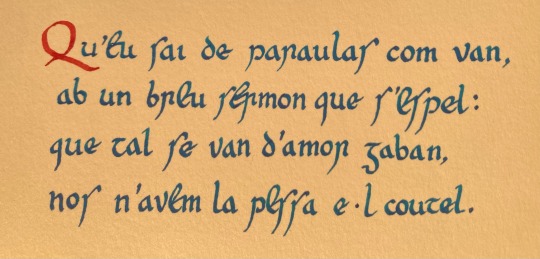 Qu'eu sai de paraulas com van,
ab un breu sermon que s'espel:
que tal se van d'amor gaban,
nos n'avem la pessa e·l coutel.